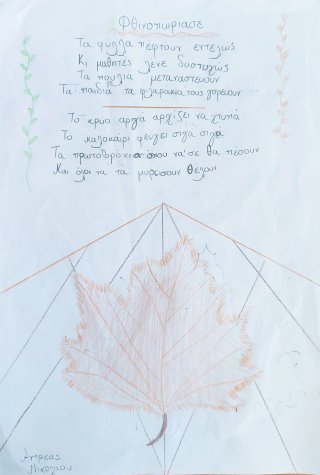 Φθινοπωριασε
Τα φυλλα πεφτουν εντελως
Κι μαθητές λενε δυστυχως
Τα πουλιά μεταναστευουν
Τα παιδιά τα φιλαρακια τους γυρευουν
Το κρυο αργα αρχίζει να χτυπά
Το καλοκαίρι φευγει σιγά σιγα
Τα πρωτοβρόχια οπου να'σε θα πέσουν
Και ολοι να τα μυρισουν θελουν
Αντρέας
Νικολαου